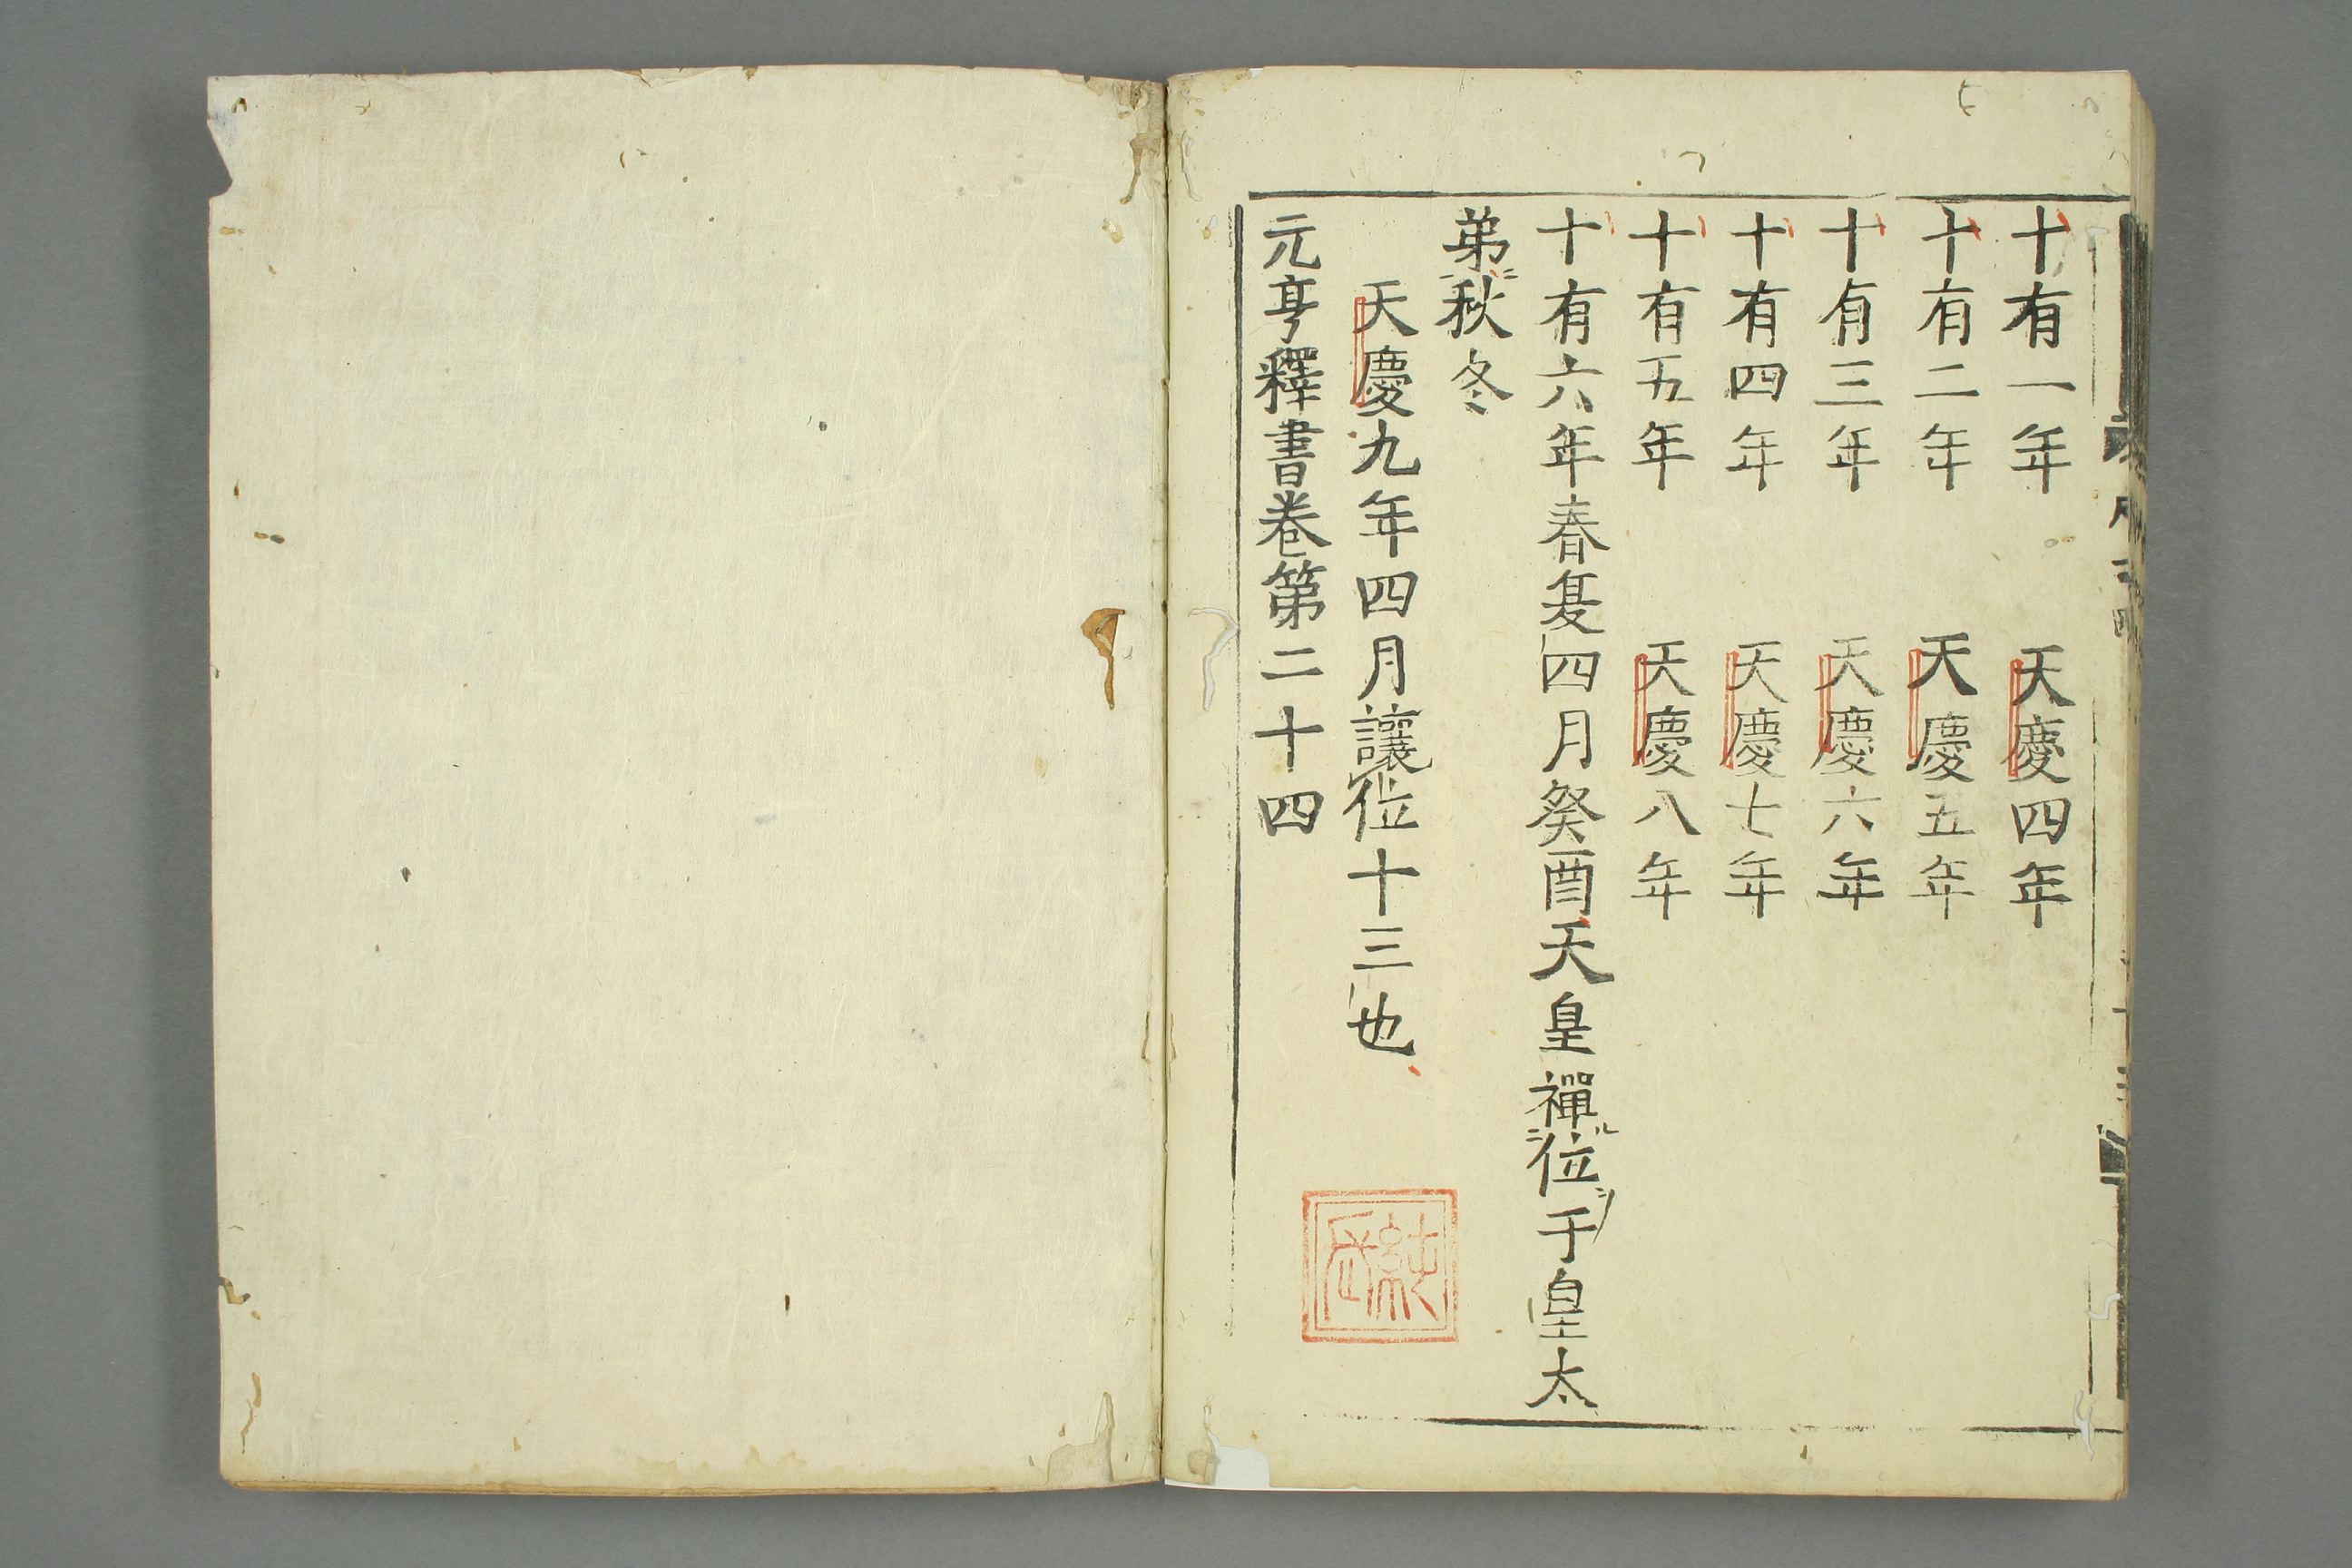 十有一年 天慶四年
十有二年 天慶五年
十有三年 天慶六年
十有四年 天慶七年
十有五年 天慶八年
十有六年春夏四月癸酉天皇禪位于皇太
弟秋冬
天慶九年四月讓位十三也
元亨釋書卷第二十四